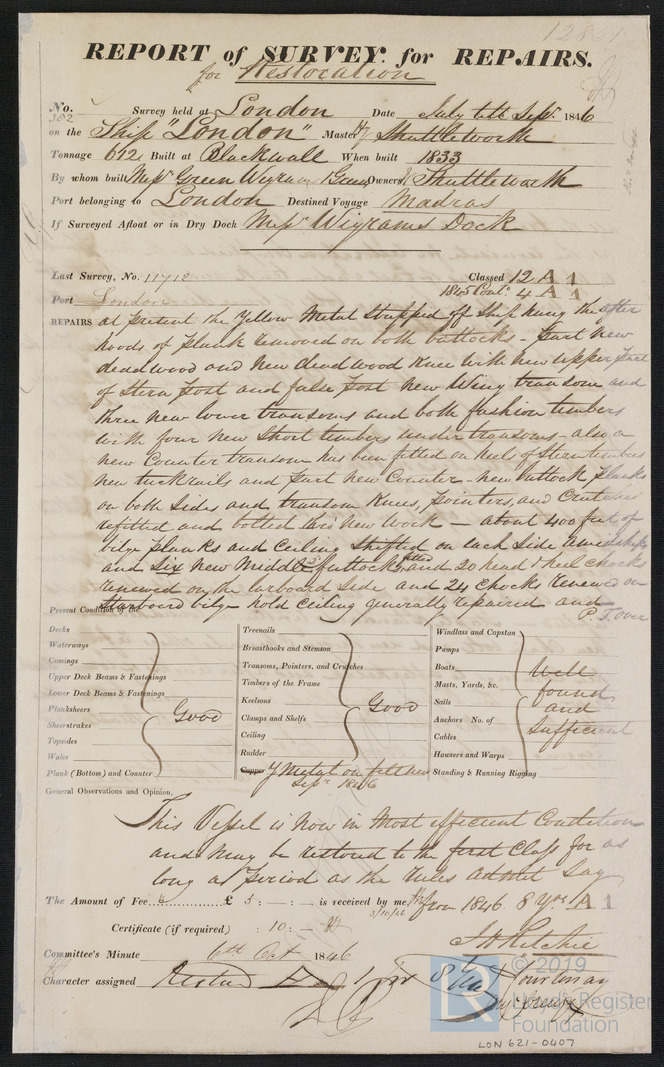 12831
REPORT of SURVEY for REPAIRS.
for Restoration
No. 382 Survey held at London Date July till Sepr. 1846
on the Ship "London" Master Shuttleworth
Tonnage 612 Built at Blackwall When built 1833
By whom built Messrs Green Wigrams & Green Owners Shuttleworth
Port belonging to London Destined Voyage Madras
If Surveyed Afloat or in Dry Dock Messrs Wigrams Dock
Last Survey, No. 11712 Classed 12 A 1
Port London 1845 Contd. 4 A 1
REPAIRS at present the Yellow Metal stripped off Ship hung the after
hoods of plank removed on both buttocks - part new
deadwood and new deadwood Knee with new upper part
of Stern post and false post new Wing transom and
three new lower transoms and both fashion timbers
with four new Short timbers under transoms - also a
new Counter transom has been fitted on heels of Stern timbers
new tuckrails and part new Counter - new buttock planks
on both sides and transom Knees, pointers, and Crutches
refitted and bolted thro new work - about 400 feet of
bilge planks and Ceiling shifted on each side amidships
and Six new Middle futtocks fitted and 20 head & heel chocks
renewed on the larboard side and 24 chocks renewed on
starboard bilge hold ceiling generally repaired and
P.T. over
Present Condition of the
Decks
Waterways
Comings
Upper Deck Beams & Fastenings
Lower Deck Beams & Fastenings
Planksheers
Sheerstrakes
Topsides
Wales
Plank (Bottom) and Counter
Good
Treenails
Breasthooks and Stemson
Transoms, Pointers, and Crutches
Timbers of the Frame
Keelsons
Clamps and Shelfs
Ceiling
Rudder
Copper Y Metal on felt new
Sepr. 1846
Good
Windlass and Capstan
Pumps
Boats
Masts, Yards, &c.
Sails
Anchors No. of
Cables
Hawsers and Warps
Standing & Running Rigging
Well
found
and
Sufficient
General Observations and Opinion,
This Vessel is now in most efficient Condition
and may be restored to the first Class for as
long a period as the rules admit Say
from 1846 8 yrs A 1
The Amount of Fee £ 5 : - : - is received by me,
3/10/46
Certificate (if required) : 10 : -
J H Ritchie
Committee's Minute 6th Oct 1846
Character assigned Restored A 1 for 8 yrs
© 2019
Lloyd's Register
Foundation
LON 621-0407